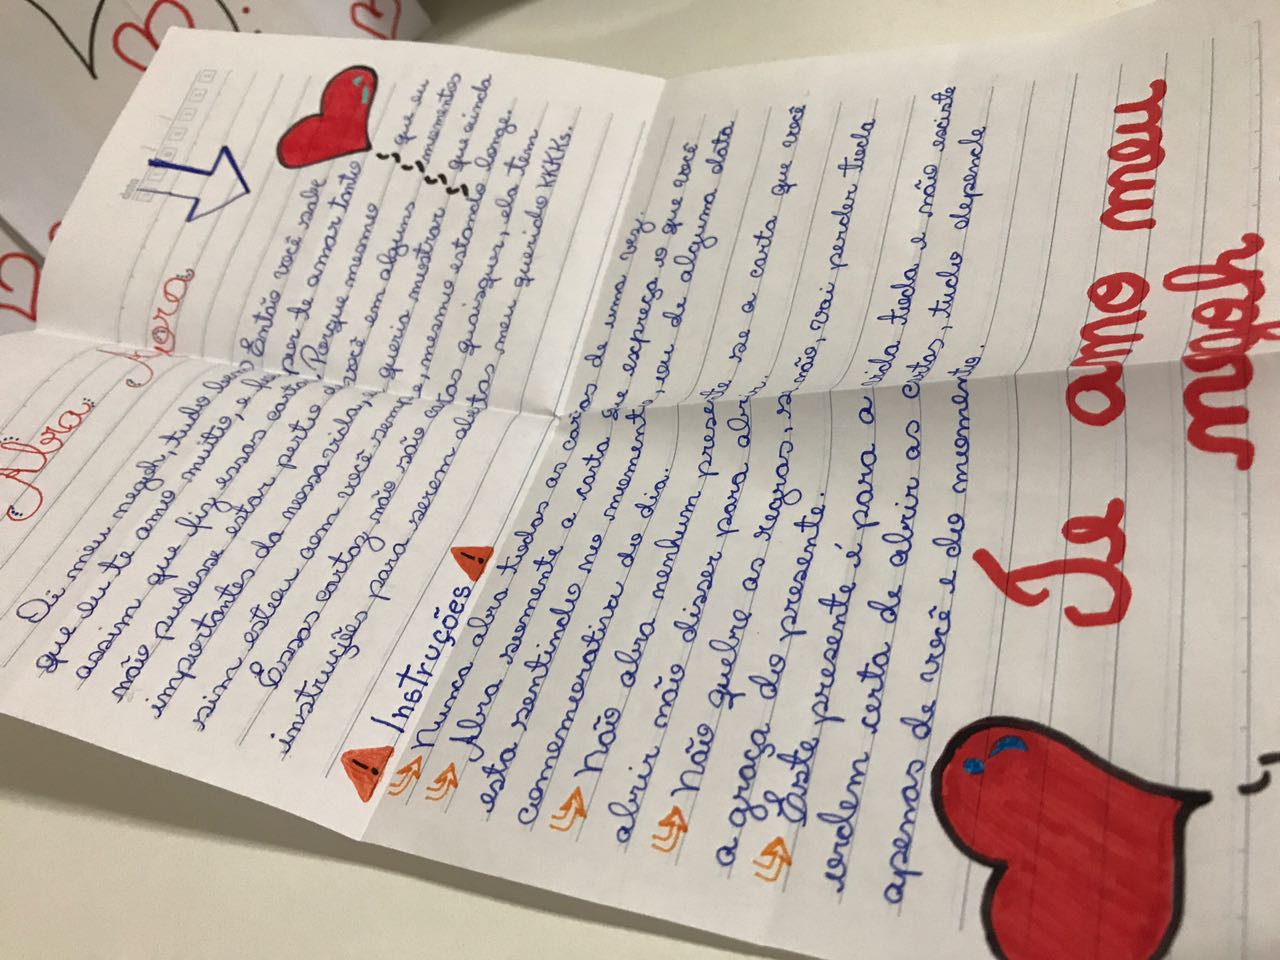 Abra Agora
Oi meu negoh, tudo bem? Então você sabe
que eu te amo muito, e foi por te amar tanto
assim que fiz essas cartas. Porque mesmo que eu
não pudesse estar perto de você em alguns momentos
importantes da nossa vida, eu queria mostrar que ainda
sim estou com você sempre, mesmo estando longe.
Essas cartaz não são cartas quaisquer, ela tem
instruções para serem abertas meu querido KKKKs.
Instruções
Nunca abra todas as cartas de uma vez.
Abra somente a carta que expreça o que você
esta sentindo no momento, ou de alguma data
comemorativa do dia.
Não abra nenhum presente se a carta que você
abrir não disser para abrir.
Não quebre as regras, se não, vai perder toda
a graça do presente.
Este presente é para a vida toda e não existe
ordem certa de abrir as cartas, tudo depende
apenas de você e do momento.
Te amo meu
negoh